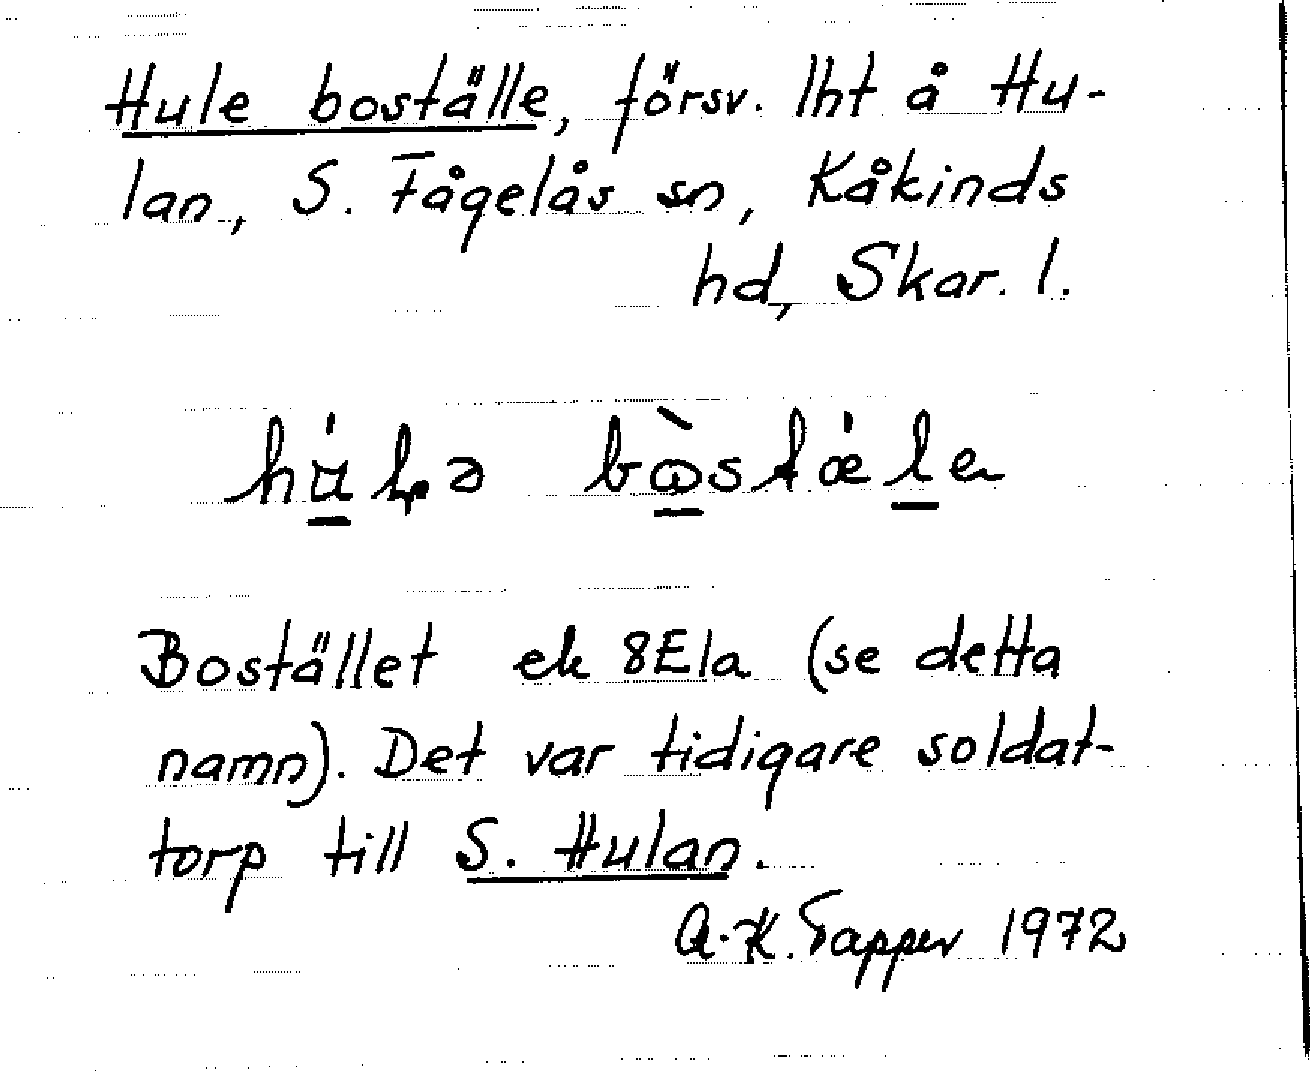 Hule boställe, försv. lht å Hu-
lan, S. Fågelås sn, Kåkinds
hd, Skar. l.
Bostället ek 8E1a (se detta
namn). Det var tidigare soldat-
torp till S. Hulan.
A.-K. Tapper 1972